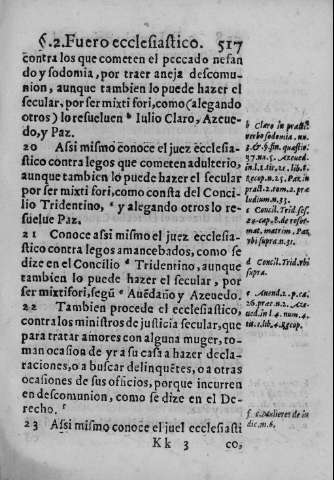 §. 2. Fuero ecclesiastico. 517
contra los que cometen el peccado nefan
do y sodomia, por traer aneja descomu-
nion, aunque tambien lo puede hazer el
secular, por ser mixti fori, como (alegando
otros) lo resueluen b Iulio Claro, Azeue-
do, y Paz.
20 Assi mismo conoce el juez ecclesia-
stico contra legos que cometen adulterio,
aunque tambien lo puede hazer el secular
por ser mixti fori, como consta del Conci-
lio Tridentino, c y alegando otros lo re-
suelue Paz.
21 Conoce assi mismo el juez ecclesia-
stico contra legos amancebados, como se
dize en el Concilio d Tridentino, aunque
tambien lo puede hazer el secular, por
ser mixti fori, segũ e Auẽdaño y Azeuedo.
22 Tambien procede el ecclesiastico,
contra los ministros de justicia secular, que
para tratar amores con alguna muger, to-
man ocasion de yr a su casa a hazer decla-
raciones, o a buscar delinquẽtes, o a otras
ocasiones de sus officios, porque incurren
en descomunion, como se dize en el De-
recho. f
23 Assi mismo conoce el juel ecclesiasti
Kk 3 co,
b Claro in practi.
verbo sodomia, nu.
3. & §. fin. quæstio.
37. nu. 5. Azeued.
in l. 1. tit. 21. lib. 8.
Recop. n. 25. Paz in
pract. 2. tom. 2. præ
ludium n. 33.
c Concil. Trid. ses.
24. cap. 8. de refor-
mat. matrim. Paz,
vbi supra n. 31.
d Concil. Trid. vbi
supra.
e Auend. 2. p. ca.
26. præt. n. 2. Aze
ued. in l. 4. num. 4.
tit. 1. lib. 4. Recop.
f c. Mulieres de in
dic. m. 6.